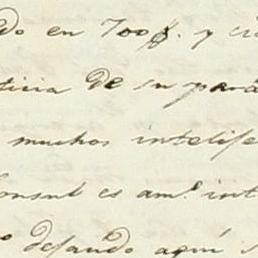 do en 700$. y
ticia de su para
muchos intelige
Consul es am.º int
dejando aquí